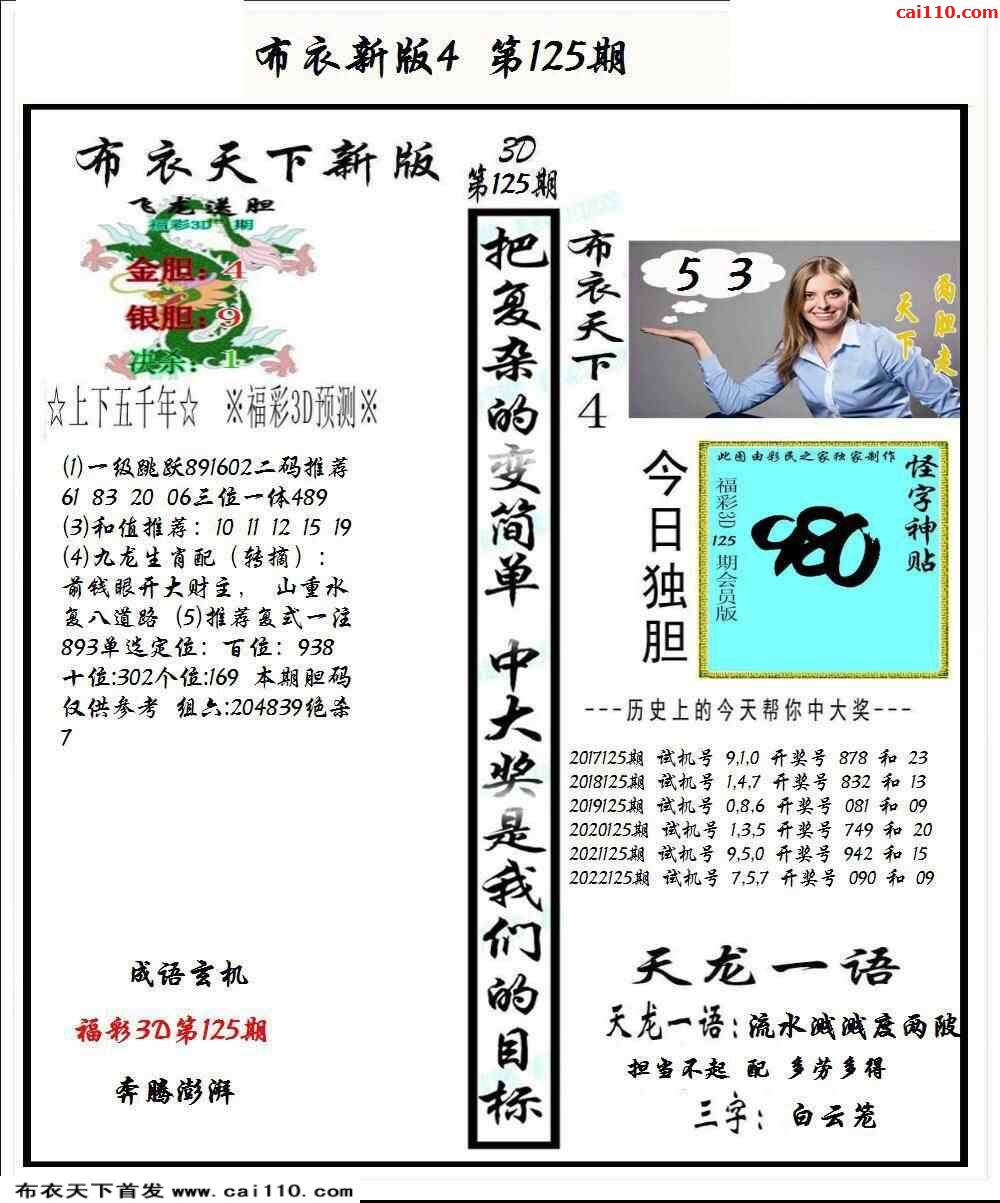 cai110.com
布衣新版4 第125期
布衣天下新版
飞龙送胆
福彩3D 期
金胆：4
银胆：9
决杀：1
☆上下五千年☆ ※福彩3D预测※
(1)一级跳跃891602二码推荐
61 83 20 06三位一体489
(3)和值推荐：10 11 12 15 19
(4)九龙生肖配（转摘）：
前钱眼开大财主， 山重水
复八道路 (5)推荐复式一注
893单选定位：百位：938
十位:302个位:169 本期胆码
仅供参考 组六:204839绝杀
7
成语玄机
福彩3D第125期
奔腾澎湃
3D
第125期
把复杂的变简单 中大奖是我们的目标
布衣天下4
5 3
两胆走
天下
今日独胆
此图由彩民之家独家制作
福彩3D125期会员版
980
怪字神贴
---历史上的今天帮你中大奖---
2017125期 试机号 9,1,0 开奖号 878 和 23
2018125期 试机号 1,4,7 开奖号 832 和 13
2019125期 试机号 0,8,6 开奖号 081 和 09
2020125期 试机号 1,3,5 开奖号 749 和 20
2021125期 试机号 9,5,0 开奖号 942 和 15
2022125期 试机号 7,5,7 开奖号 090 和 09
天龙一语
天龙一语：流水溅溅度两陂
担当不起 配 多劳多得
三字： 白云笼
布衣天下首发 www.cai110.com